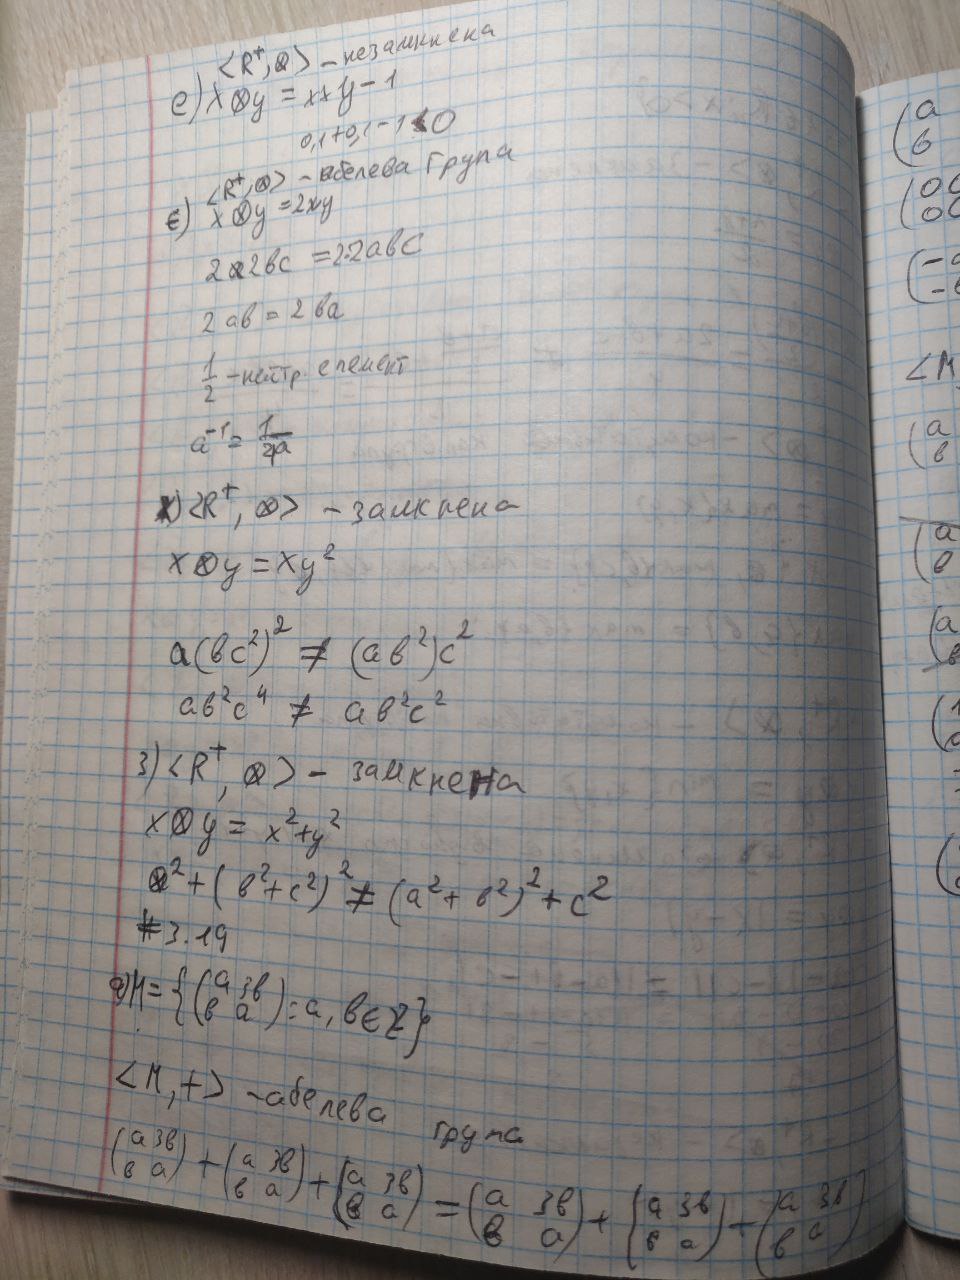 <R⁺, ⊗> - незамкнена
е) x⊗y = x+y-1
0,1+0,1-1<0
<R⁺, ⊗> - абелева група
є) x⊗y = 2xy
2a2bc = 2·2abc
2ab = 2ba
1/2 - нейтр. елемент
a⁻¹ = 1/4a
ж) <R⁺, ⊗> - замкнена
x⊗y = xy²
a(bc²)² ≠ (ab²)c²
ab²c⁴ ≠ ab²c²
з) <R⁺, ⊗> - замкнена
x⊗y = x²+y²
a²+(b²+c²)² ≠ (a²+b²)²+c²
#3.19
а) M = {(a 3b
b a) : a, b ∈ Z}
<M, +> - абелева група
(a 3b
b a) + (a 3b
b a) + (a 3b
b a) = (a 3b
b a) + (a 3b
b a) + (a 3b
b a)
(a
b
(00
00
(-a
-b
<M,
(a
b
(a
b
(a
b
(1